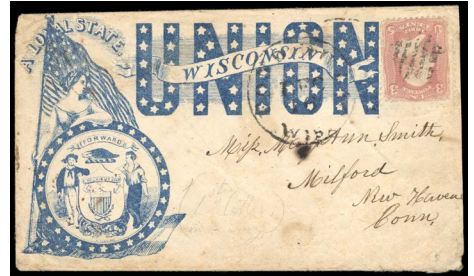 A LOYAL STATE
UNION
WISCONSIN
FORWARD
WIS
Miss Mary Ann Smith,
Milford
New Haven
Conn,